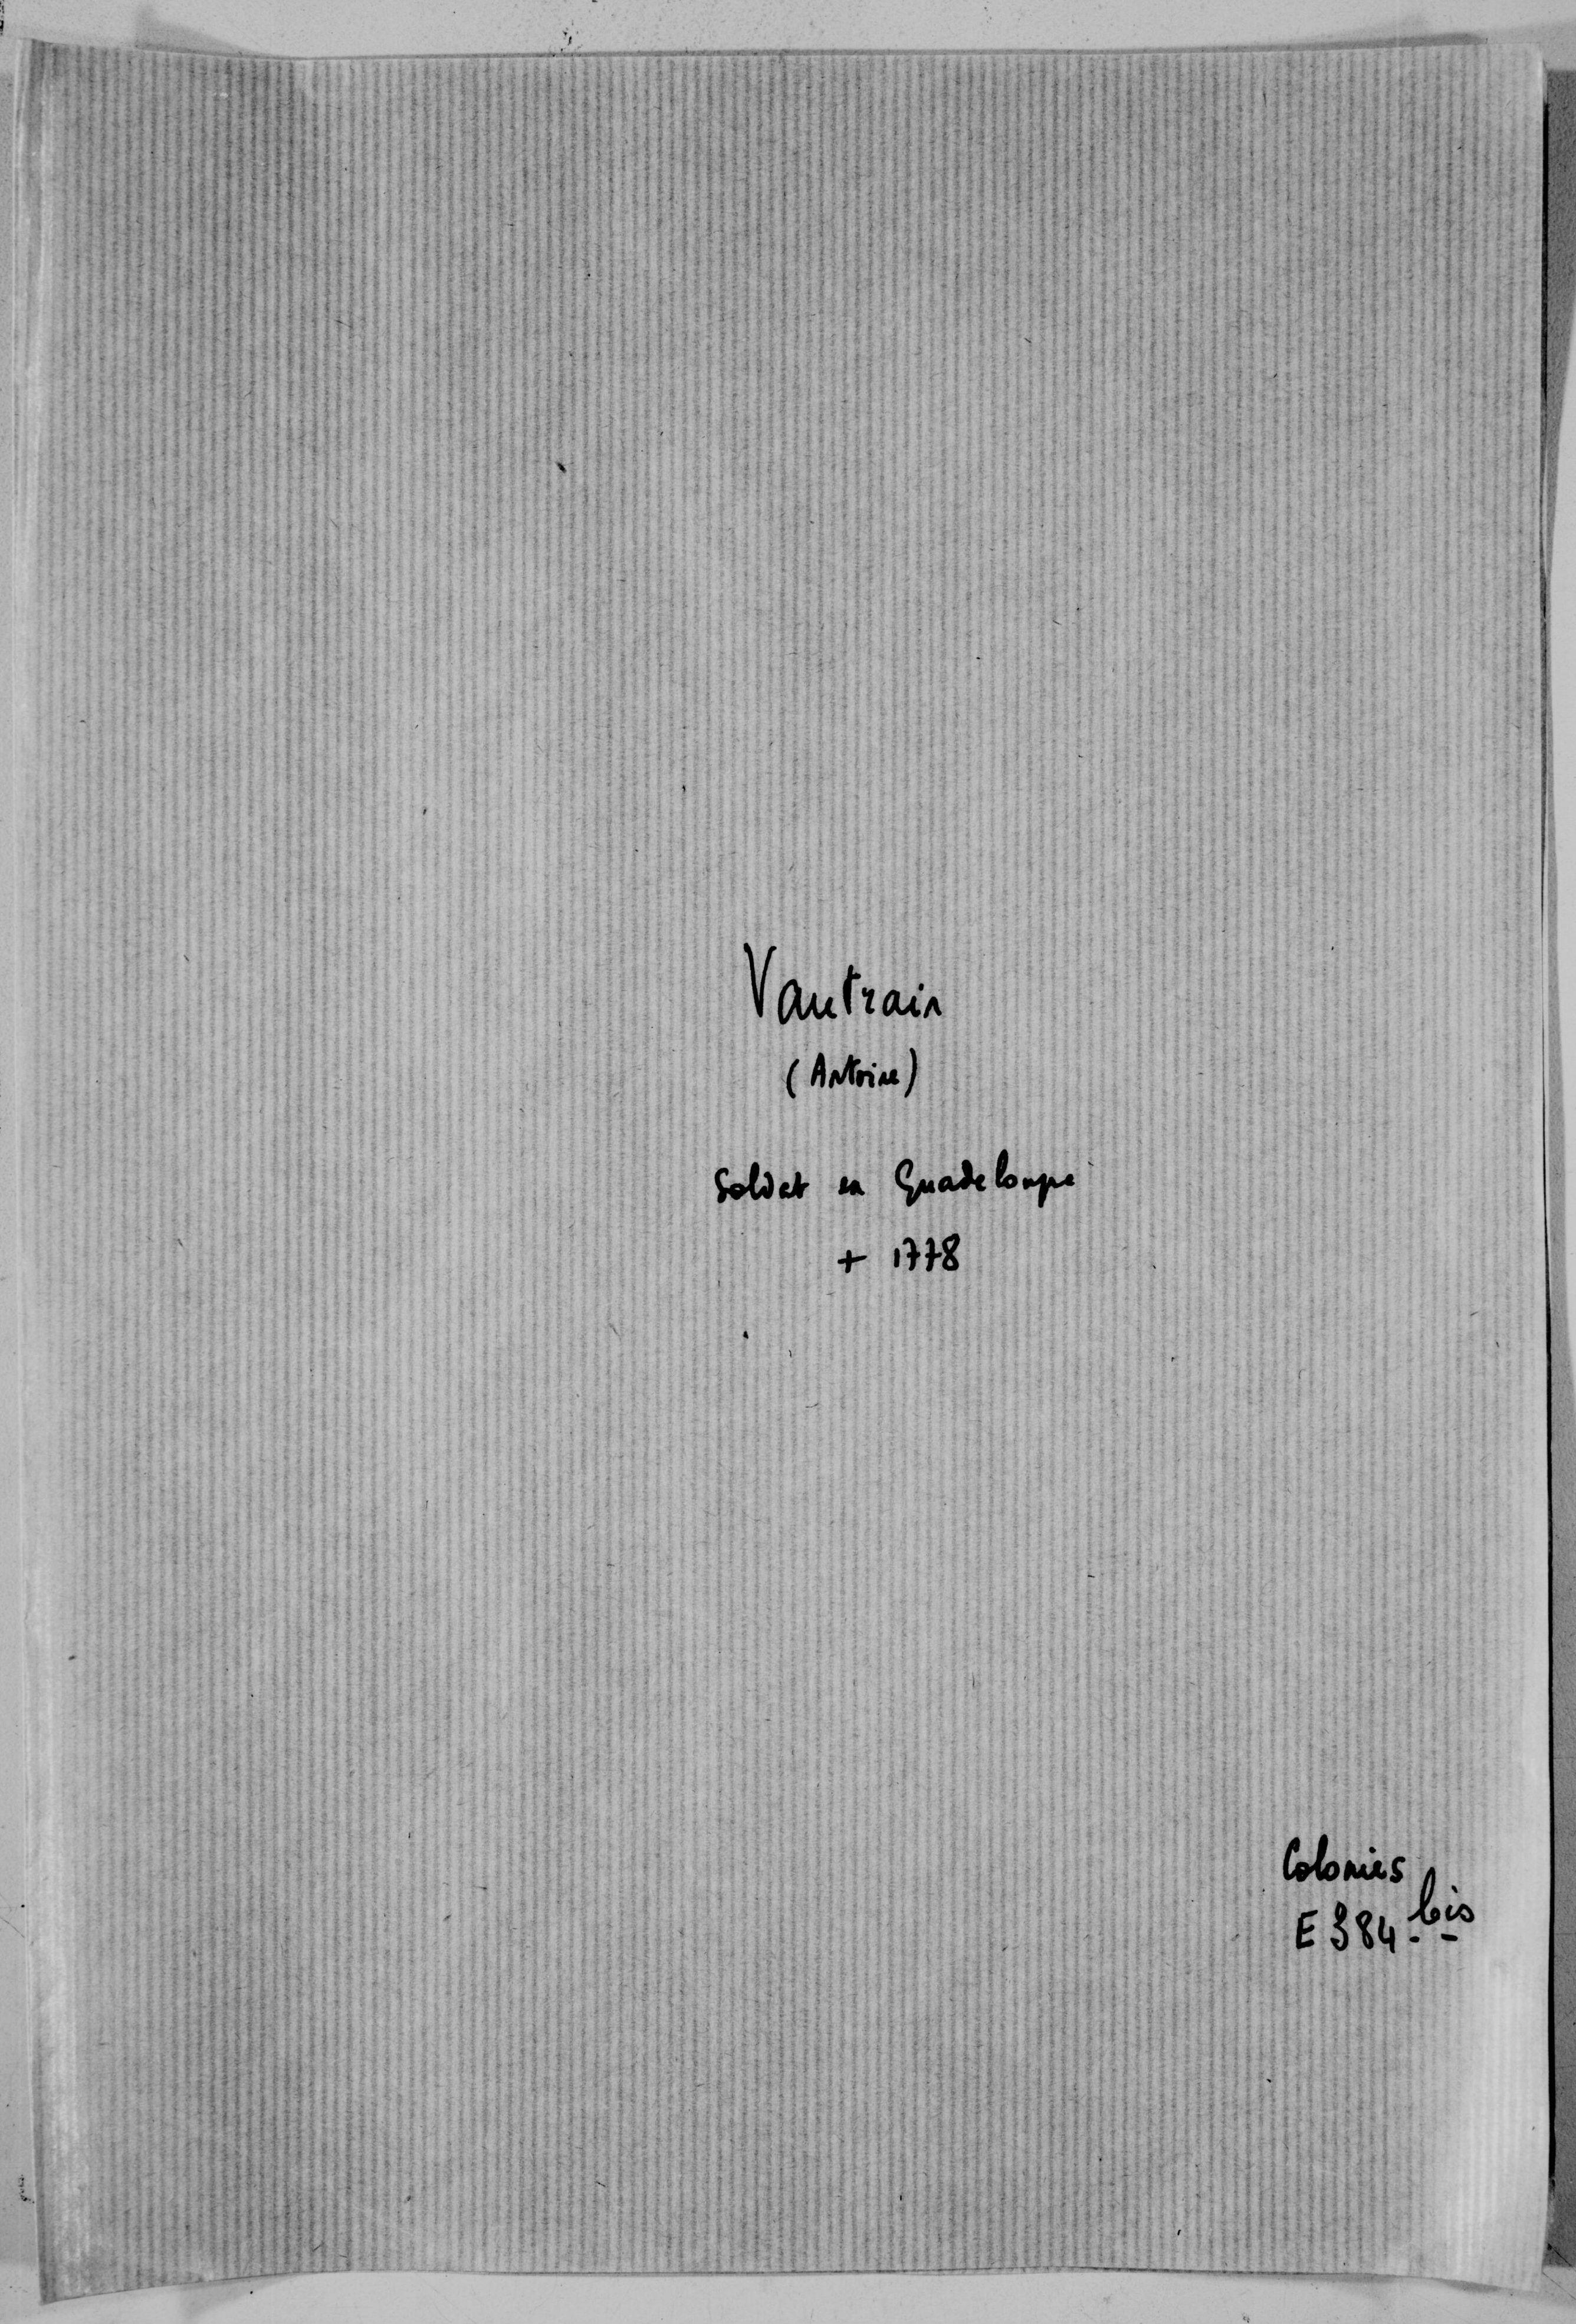 Vautrain
(Antoine)
Soldat en Guadeloupe
+ 1778
Colonies
E 384 bis